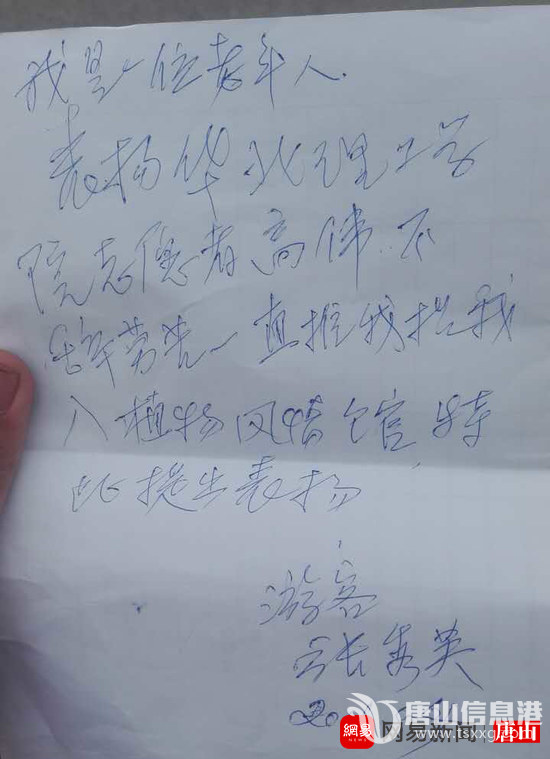 我是一位老年人.
表扬华北理工学
院志愿者高伟.不
辞劳苦一直推我把我
入植物风情馆特
此提出表扬
游客
张秀英
20
唐山信息港
www.tsxxg.com
網易 网易新闻 唐山